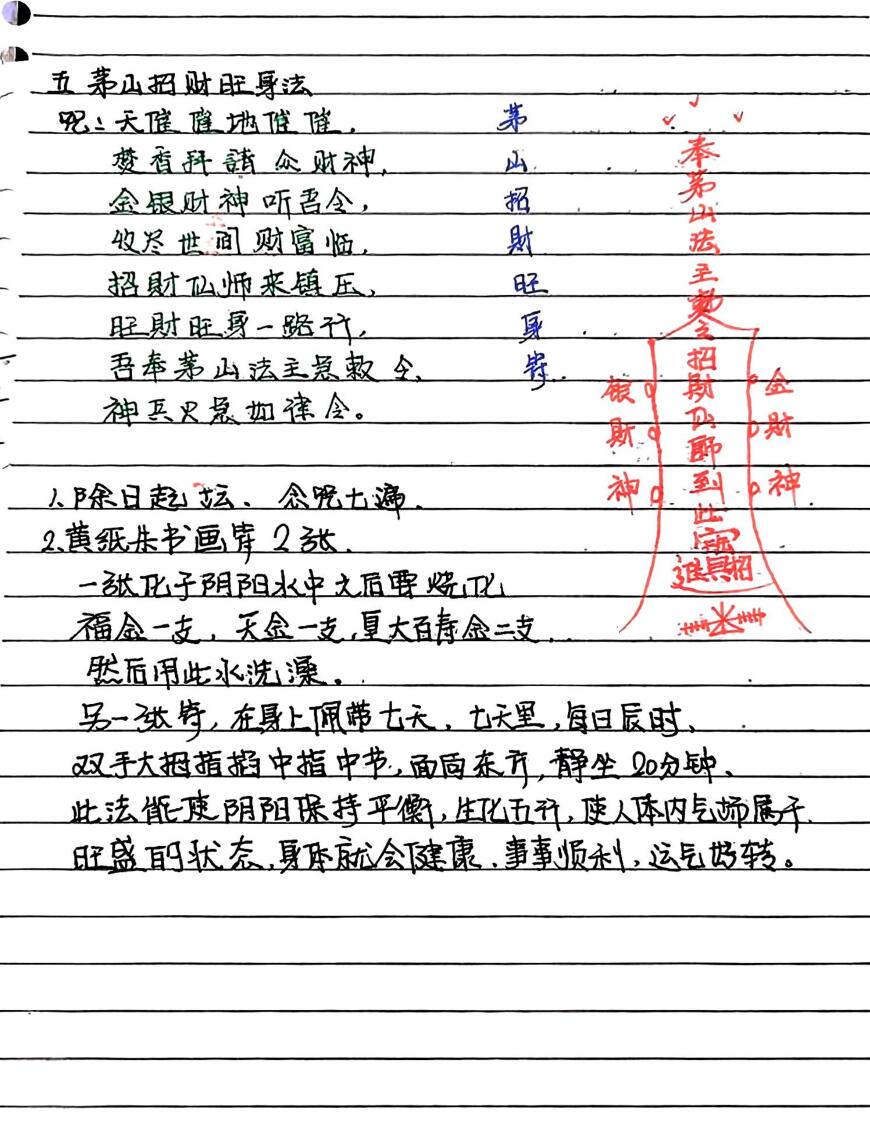 五 茅山招财旺身法
咒:天催催地催催,
焚香拜請众财神,
金银财神听吾令,
收尽世间财富临,
招財仙师来镇压,
旺財旺身一路行,
吾奉茅山法主急敕令,
神兵火急如律令。
茅山招財旺身符
奉茅山法主敕令招財仙師到此
银財神
金財神
1.除日起坛、念咒七遍.
2.黄纸朱书画符2张.
一张化于阴阳水中之后要烧化
福金一支,天金一支,更大百寿金二支.
然后用此水洗澡。
另一张符,在身上佩带七天、七天里,每日辰时、
双手大拇指掐中指中节,面向东方,静坐20分钟、
此法能使阴阳保持平衡,生化五行,使人体内气场属于
旺盛的状态,身体就会健康.事事顺利,运气好转。